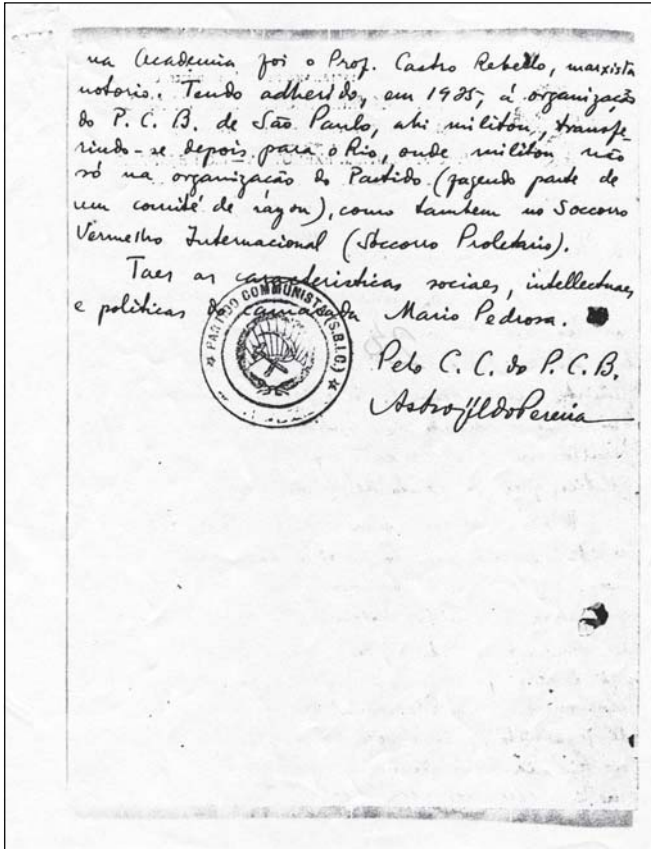 na Academia foi o Prof. Castro Rebello, marxista
notorio. Tendo adherido, em 1925, á organização
do P. C. B. de São Paulo, ahi militou, transfe-
rindo-se depois para o Rio, onde militou não
só na organização do Partido (fazendo parte de
um comité de rayon), como tambem no Soccorro
Vermelho Internacional (Soccorro Proletario).
Taes as caracteristicas sociaes, intellectuaes
e politicas do camarada Mario Pedrosa.
PARTIDO COMMUNISTA (S.B.I.C.)
Pelo C. C. do P. C. B.
Astrojildo Pereira